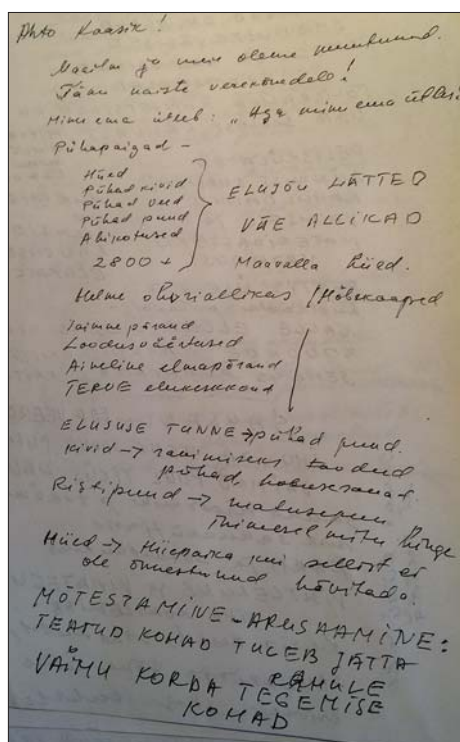 Ahto Kaasik!
Maailm ja meie oleme muutunud.
Tänu naiste verekoodelo!
Minu ema ütleb: „Aga minu ema ütles!
Pühapaigad -
Hiied
Pühad kivid
Pühad veed
Pühad puud
Abipotused
2800 +
ELUJÕU LÄTTED
VÄE ALLIKAD
Maavalla hiied.
Helme ohvriallikas / Hõbekaared
Taimne pärand
Loodusväärtused
Aineline elmapärand
TERVE elukeskkond
ELUSUSE TUNNE → pühad puud.
Kivid → ravimiseks toodud
pühad,
Ristipuud → matusepuu
Inimesel mitu hinge
Hiied → Hiiepaika kui sellist ei
ole õnnestunud hävitada.
MÕTESTAMINE - ARUSAAMINE:
TEATUD KOHAD TULEB JÄTTA
RAHULE
VAIMU KORDA TEGEMISE
KOHAD